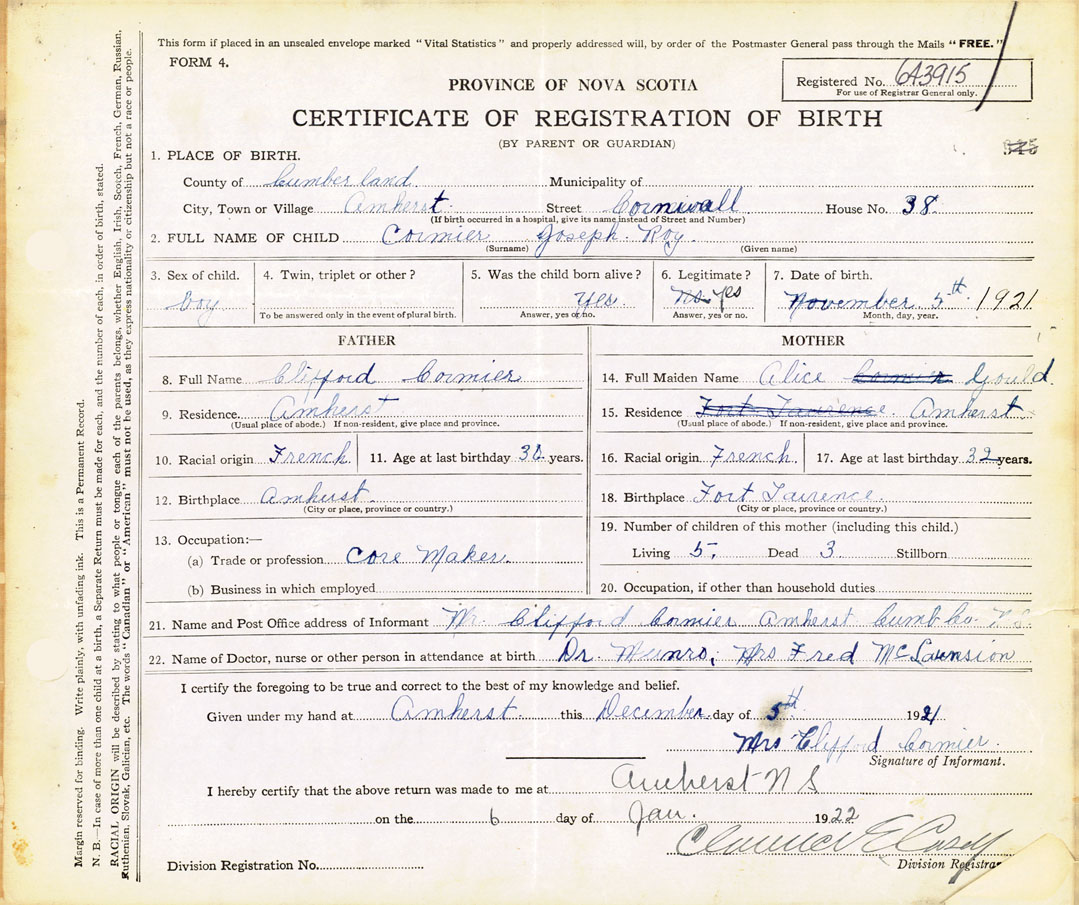 This form if placed in an unsealed envelope marked "Vital Statistics" and properly addressed will, by order of the Postmaster General pass through the Mails "FREE."
FORM 4.
Registered No. 643915
For use of Registrar General only.
PROVINCE OF NOVA SCOTIA
CERTIFICATE OF REGISTRATION OF BIRTH
(BY PARENT OR GUARDIAN)
1. PLACE OF BIRTH.
County of Cumberland Municipality of
City, Town or Village Amherst Street Cornwall House No. 38
(If birth occurred in a hospital, give its name instead of Street and Number)
2. FULL NAME OF CHILD Cormier Joseph Roy
(Surname) (Given name)
3. Sex of child. 4. Twin, triplet or other? 5. Was the child born alive? 6. Legitimate? 7. Date of birth.
boy Yes. No Yes November 5th 1921
To be answered only in the event of plural birth. Answer, yes or no. Answer, yes or no. Month, day, year.
FATHER MOTHER
8. Full Name Clifford Cormier 14. Full Maiden Name Alice Cormier Gould
9. Residence. Amherst 15. Residence Fort Laurence. Amherst
(Usual place of abode.) If non-resident, give place and province. (Usual place of abode.) If non-resident, give place and province.
10. Racial origin French 11. Age at last birthday years. 16. Racial origin French 17. Age at last birthday 32 years.
12. Birthplace Amhurst 18. Birthplace Fort Laurence.
(City or place, province or country.) (City or place, province or country.)
13. Occupation:— 19. Number of children of this mother (including this child.)
(a) Trade or profession Core Maker. Living 5. Dead 3. Stillborn
(b) Business in which employed 20. Occupation, if other than household duties
21. Name and Post Office address of Informant Mr. Clifford Cormier Amherst Cumb Co. N.S.
22. Name of Doctor, nurse or other person in attendance at birth Dr. Munro; Mrs Fred
I certify the foregoing to be true and correct to the best of my knowledge and belief.
Given under my hand at Amherst this December day of 5th 1921
Mrs Clifford Cormier.
Signature of Informant.
I hereby certify that the above return was made to me at Amherst N S
on the 6 day of Jan. 1922
Clarence E Casey
Division Registrar
Division Registration No.
Margin reserved for binding. Write plainly, with unfading ink. This is a Permanent Record.
N. B.—In case of more than one child at a birth, a Separate Return must be made for each, and the number of each, in order of birth, stated.
RACIAL ORIGIN will be described by stating to what people or tongue each of the parents belongs, whether English, Irish, Scotch, French, German, Russian,
Ruthenian, Slovak, Galician, etc. The words "Canadian" or "American" must not be used, as they express nationality or citizenship but not a race or people.